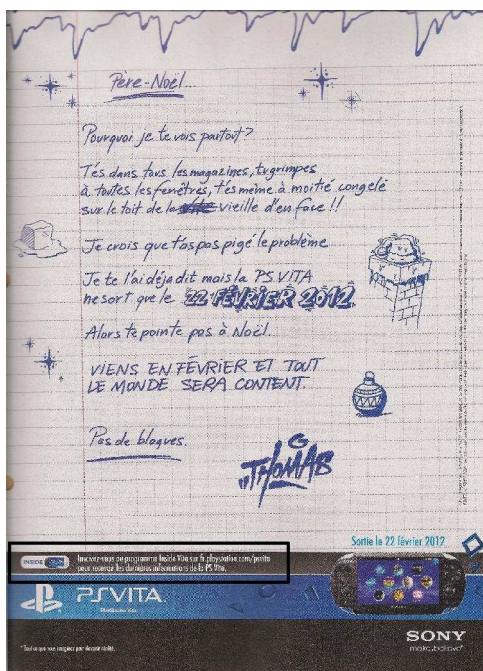 Père-Noël...
Pourquoi je te vois partout?
T'es dans tous les magazines, tu grimpes
à toutes les fenêtres, t'es même à moitié congelé
sur le toit de la vieille d'en face !!
Je crois que t'as pas pigé le problème
Je te l'ai déja dit mais la PS VITA
ne sort que le 22 FÉVRIER 2012
Alors te pointe pas à Noël.
VIENS EN FÉVRIER ET TOUT
LE MONDE SERA CONTENT.
Pas de blagues.
THOMAS
Sortie le 22 février 2012
INSIDE
Inscrivez-vous au programme Inside Vita sur fr.playstation.com/psvita
pour recevoir les dernières informations de la PS Vita.
PSVITA
PlayStation Vita
SONY
make.believe*